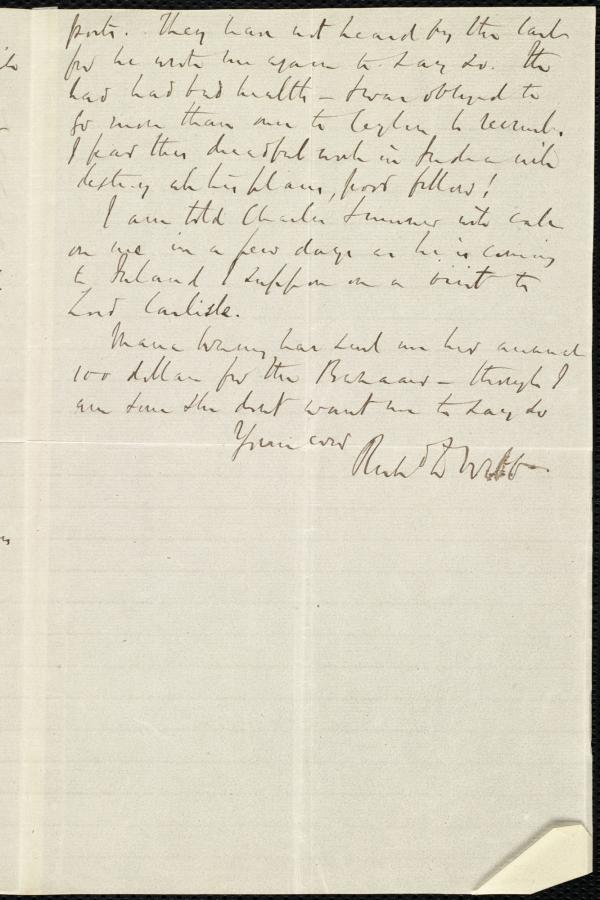 ports. They have not heard by the last
for he wrote me again to say so. He
had had bad health – & was obliged to
go more than once to Ceylon to recruit.
I fear this dreadful work in India will
destroy all his plans, poor fellow!
I am told Charles Sumner will call
on me in a few days as he is coming
to Ireland I suppose on a visit to
Lord Carlisle.
Maria Waring has sent me her annual
100 dollars for the Bazaar – though I
am sure she don't want me to say so
Yours ever
Richd D Webb